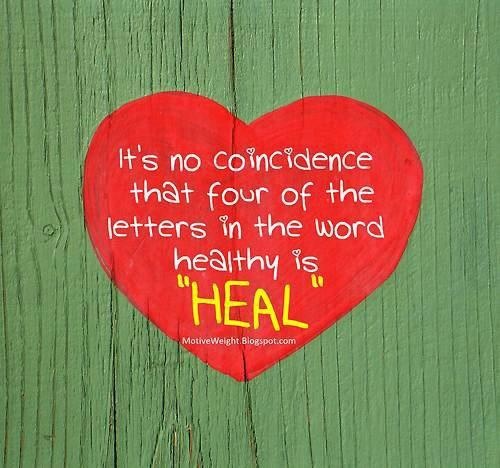 It's no coincidence
that four of the
letters in the word
healthy is
"HEAL"
MotiveWeight.Blogspot.com